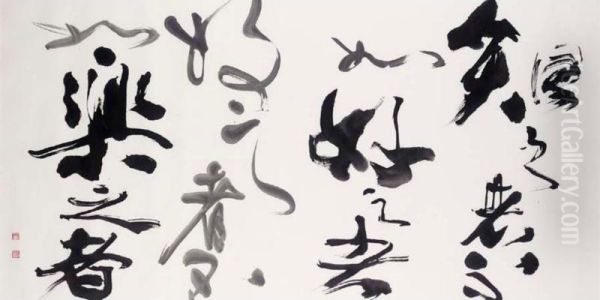 知之者不
如好之者
好之者不
如楽之者